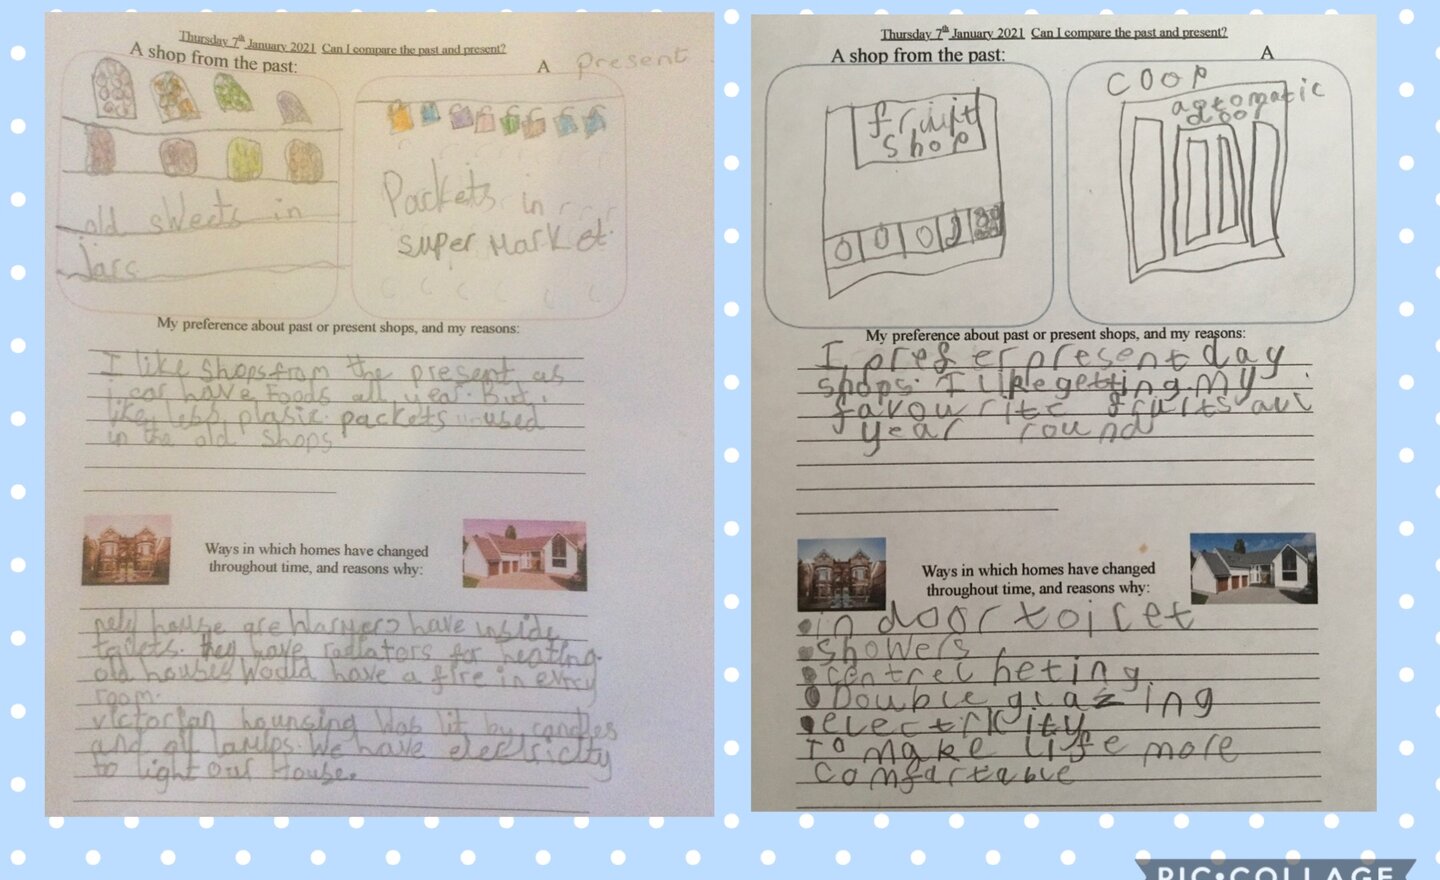 Thursday 7th January 2021 Can I compare the past and present?
A shop from the past:
A present
old sweets in
jars
Packets in
super market.
My preference about past or present shops, and my reasons:
I like shops from the present as
i can have foods all year. But i
like less plasic packets used
in the old shops
Ways in which homes have changed
throughout time, and reasons why:
house are warmer have inside
toilets. they have radiators for heating.
old houses would have a fire in every
room.
victorian hounsing was lit by candles
and oil lamps. We have electricity
to light our House.
Thursday 7th January 2021 Can I compare the past and present?
A shop from the past:
A
fruit
shop
coop
automatic
door
My preference about past or present shops, and my reasons:
I prefer present day
shops. I like getting my
favourite fruits all
year round
Ways in which homes have changed
throughout time, and reasons why:
in door toilet
showers
centrel heting
Double glazing
electricity
To make life more
comfartable
PIC•COLLAGE